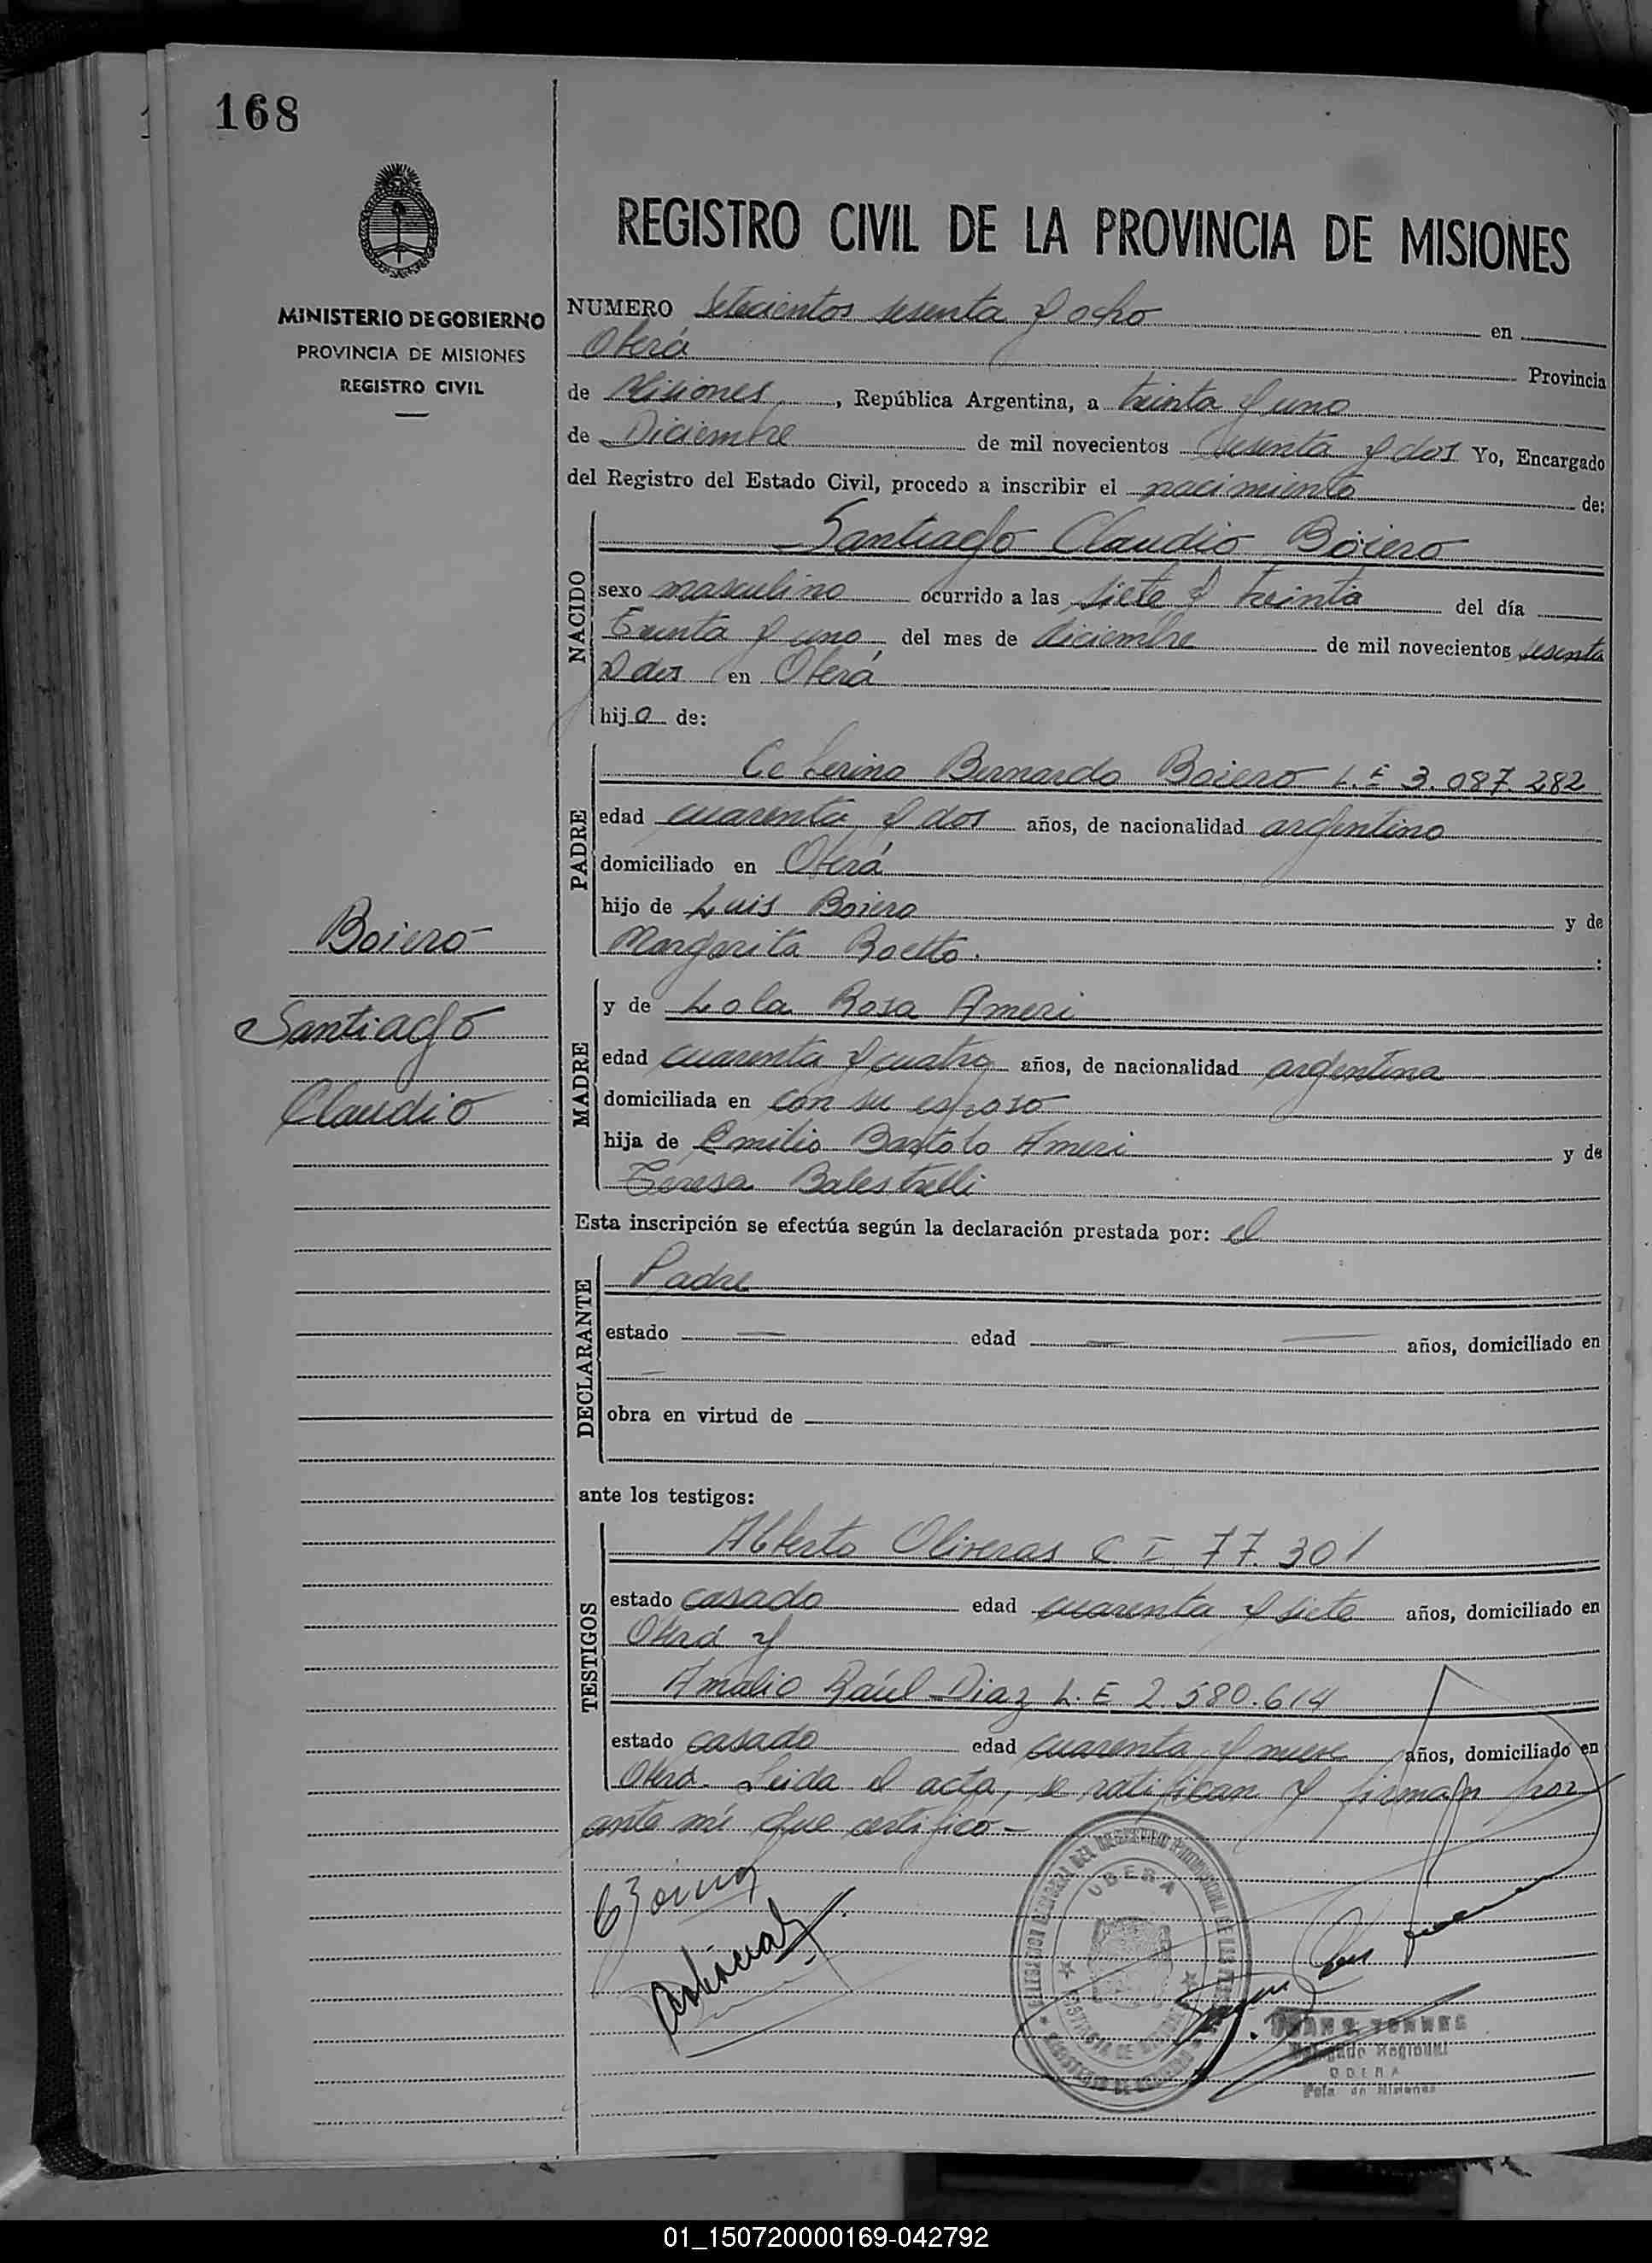 168
MINISTERIO DE GOBIERNO
PROVINCIA DE MISIONES
REGISTRO CIVIL
REGISTRO CIVIL DE LA PROVINCIA DE MISIONES
NUMERO Setecientos sesenta y ocho en
Oberá Provincia
de Misiones, República Argentina, a treinta y uno
de Diciembre de mil novecientos sesenta y dos Yo, Encargado
del Registro del Estado Civil, procedo a inscribir el nacimiento de:
NACIDO
Santiago Claudio Boiero
sexo masculino ocurrido a las siete y treinta del día
Treinta y uno del mes de diciembre de mil novecientos sesenta
y dos en Oberá
hijo de:
PADRE
Ceferino Bernardo Boiero L.E 3.087.282
edad cuarenta y dos años, de nacionalidad argentino
domiciliado en Oberá
hijo de Luis Boiero y de
Margarita Boetto.
MADRE
y de Lola Rosa Ameri
edad cuarenta y cuatro años, de nacionalidad argentina
domiciliada en con su esposo
hija de Emilio Bartolo Ameri y de
Teresa Balestrelli
Boiero
Santiago
Claudio
Esta inscripción se efectúa según la declaración prestada por: el
DECLARANTE
Padre
estado — edad — años, domiciliado en
—
obra en virtud de
ante los testigos:
TESTIGOS
Alberto Oliveras C I 77.301
estado casado edad cuarenta y siete años, domiciliado en
Oberá y
Amalio Raúl Diaz L.E 2.580.614
estado casado edad cuarenta y nueve años, domiciliado en
Oberá. Leida el acta, se ratifican y firman por
ante mí que certifico -
OBERA
TORRES
Delegado Regional
OBERA
Pcia. de Misiones
01_150720000169-042792